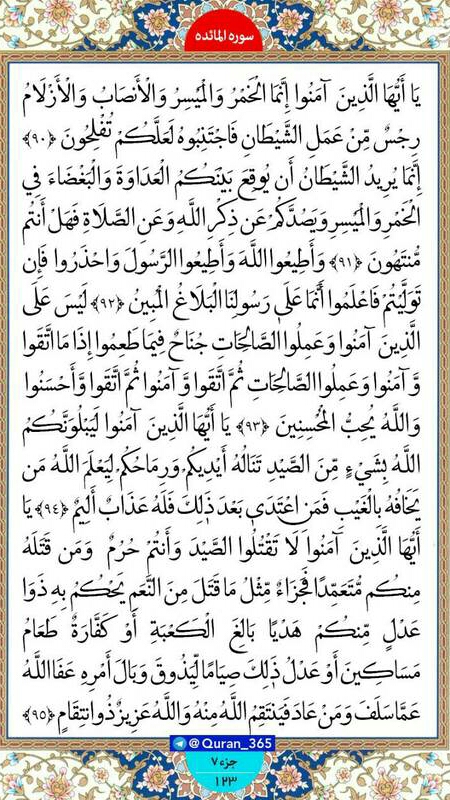 سوره المائده
يَا أَيُّهَا الَّذِينَ آمَنُوا إِنَّمَا الْخَمْرُ وَالْمَيْسِرُ وَالْأَنْصَابُ وَالْأَزْلَامُ
رِجْسٌ مِّنْ عَمَلِ الشَّيْطَانِ فَاجْتَنِبُوهُ لَعَلَّكُمْ تُفْلِحُونَ ﴿٩٠﴾
إِنَّمَا يُرِيدُ الشَّيْطَانُ أَن يُوقِعَ بَيْنَكُمُ الْعَدَاوَةَ وَالْبَغْضَاءَ فِي
الْخَمْرِ وَالْمَيْسِرِ وَيَصُدَّكُمْ عَن ذِكْرِ اللَّهِ وَعَنِ الصَّلَاةِ فَهَلْ أَنتُم
مُّنتَهُونَ ﴿٩١﴾ وَأَطِيعُوا اللَّهَ وَأَطِيعُوا الرَّسُولَ وَاحْذَرُوا فَإِن
تَوَلَّيْتُمْ فَاعْلَمُوا أَنَّمَا عَلَىٰ رَسُولِنَا الْبَلَاغُ الْمُبِينُ ﴿٩٢﴾ لَيْسَ عَلَى
الَّذِينَ آمَنُوا وَعَمِلُوا الصَّالِحَاتِ جُنَاحٌ فِيمَا طَعِمُوا إِذَا مَا اتَّقَوا
وَّآمَنُوا وَعَمِلُوا الصَّالِحَاتِ ثُمَّ اتَّقَوا وَّآمَنُوا ثُمَّ اتَّقَوا وَّأَحْسَنُوا
وَاللَّهُ يُحِبُّ الْمُحْسِنِينَ ﴿٩٣﴾ يَا أَيُّهَا الَّذِينَ آمَنُوا لَيَبْلُوَنَّكُمُ
اللَّهُ بِشَيْءٍ مِّنَ الصَّيْدِ تَنَالُهُ أَيْدِيكُمْ وَرِمَاحُكُمْ لِيَعْلَمَ اللَّهُ مَن
يَخَافُهُ بِالْغَيْبِ فَمَنِ اعْتَدَى بَعْدَ ذَٰلِكَ فَلَهُ عَذَابٌ أَلِيمٌ ﴿٩٤﴾ يَا
أَيُّهَا الَّذِينَ آمَنُوا لَا تَقْتُلُوا الصَّيْدَ وَأَنتُمْ حُرُمٌ وَمَن قَتَلَهُ
مِنكُم مُّتَعَمِّدًا فَجَزَاءٌ مِّثْلُ مَا قَتَلَ مِنَ النَّعَمِ يَحْكُمُ بِهِ ذَوَا
عَدْلٍ مِّنكُمْ هَدْيًا بَالِغَ الْكَعْبَةِ أَوْ كَفَّارَةٌ طَعَامُ
مَسَاكِينَ أَوْ عَدْلُ ذَٰلِكَ صِيَامًا لِّيَذُوقَ وَبَالَ أَمْرِهِ عَفَا اللَّهُ
عَمَّا سَلَفَ وَمَنْ عَادَ فَيَنتَقِمُ اللَّهُ مِنْهُ وَاللَّهُ عَزِيزٌ ذُو انتِقَامٍ ﴿٩٥﴾
@Quran_365
جزء ٧
١٢٣